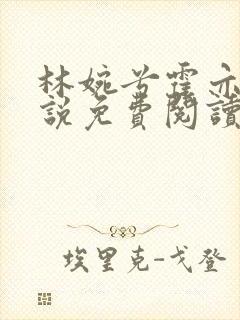 林婉兮霍亦
說免費閱讀
埃里克-戈登